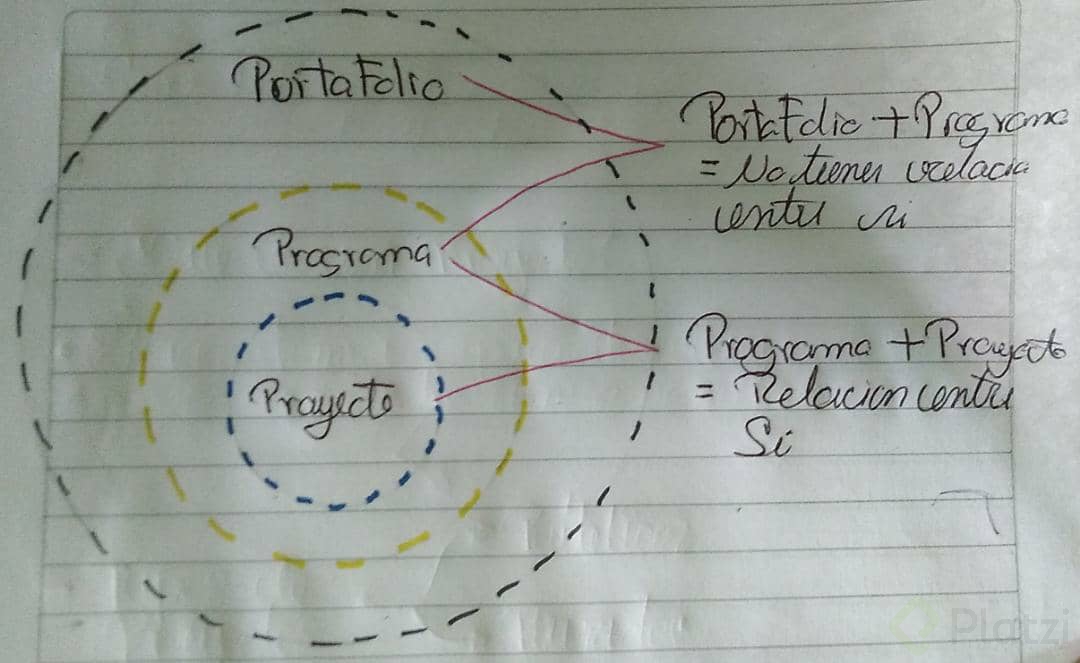 Portafolio
Portafolio + Programa
= No tienen relacion
entre si
Programa
Programa + Proyecto
= Relacion entre
Si
Proyecto
Platzi